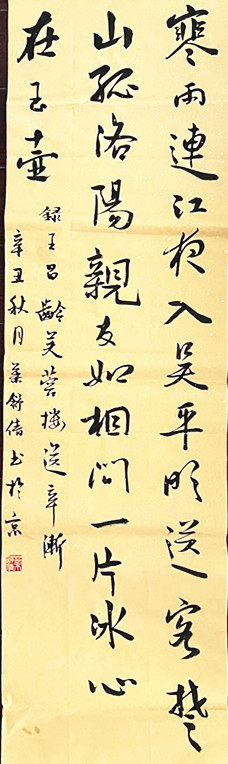 寒雨連江夜入吴平明送客楚
山孤洛陽親友如相問一片冰心
在玉壺
録王昌齡芙蓉楼送辛漸
辛丑秋月葉舒倩书於京